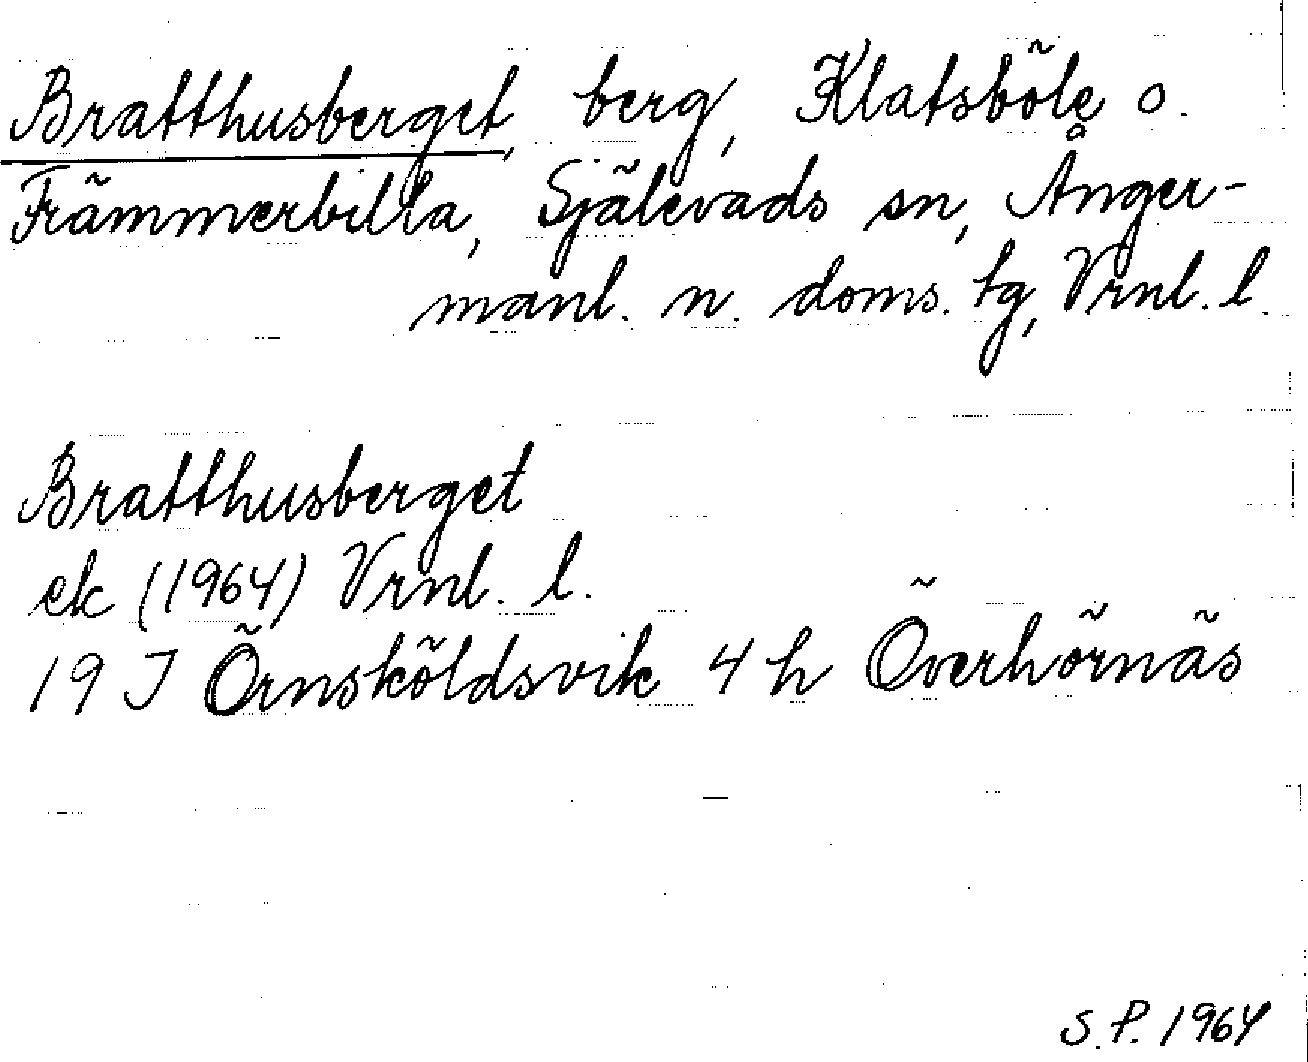 Bratthusberget, berg, Klatsböle o.
Främmerbilla, Själevads sn, Ånger-
manl. n. doms. tg, Vrnl. l.
Bratthusberget
ek (1964) Vrnl. l.
19 J Örnsköldsvik 4 h Överhörnäs
S. P. 1964